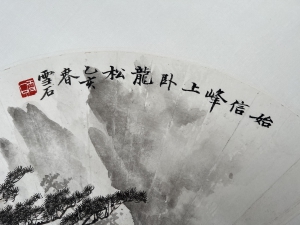 始信峰上卧龍松
乙亥春
雪石